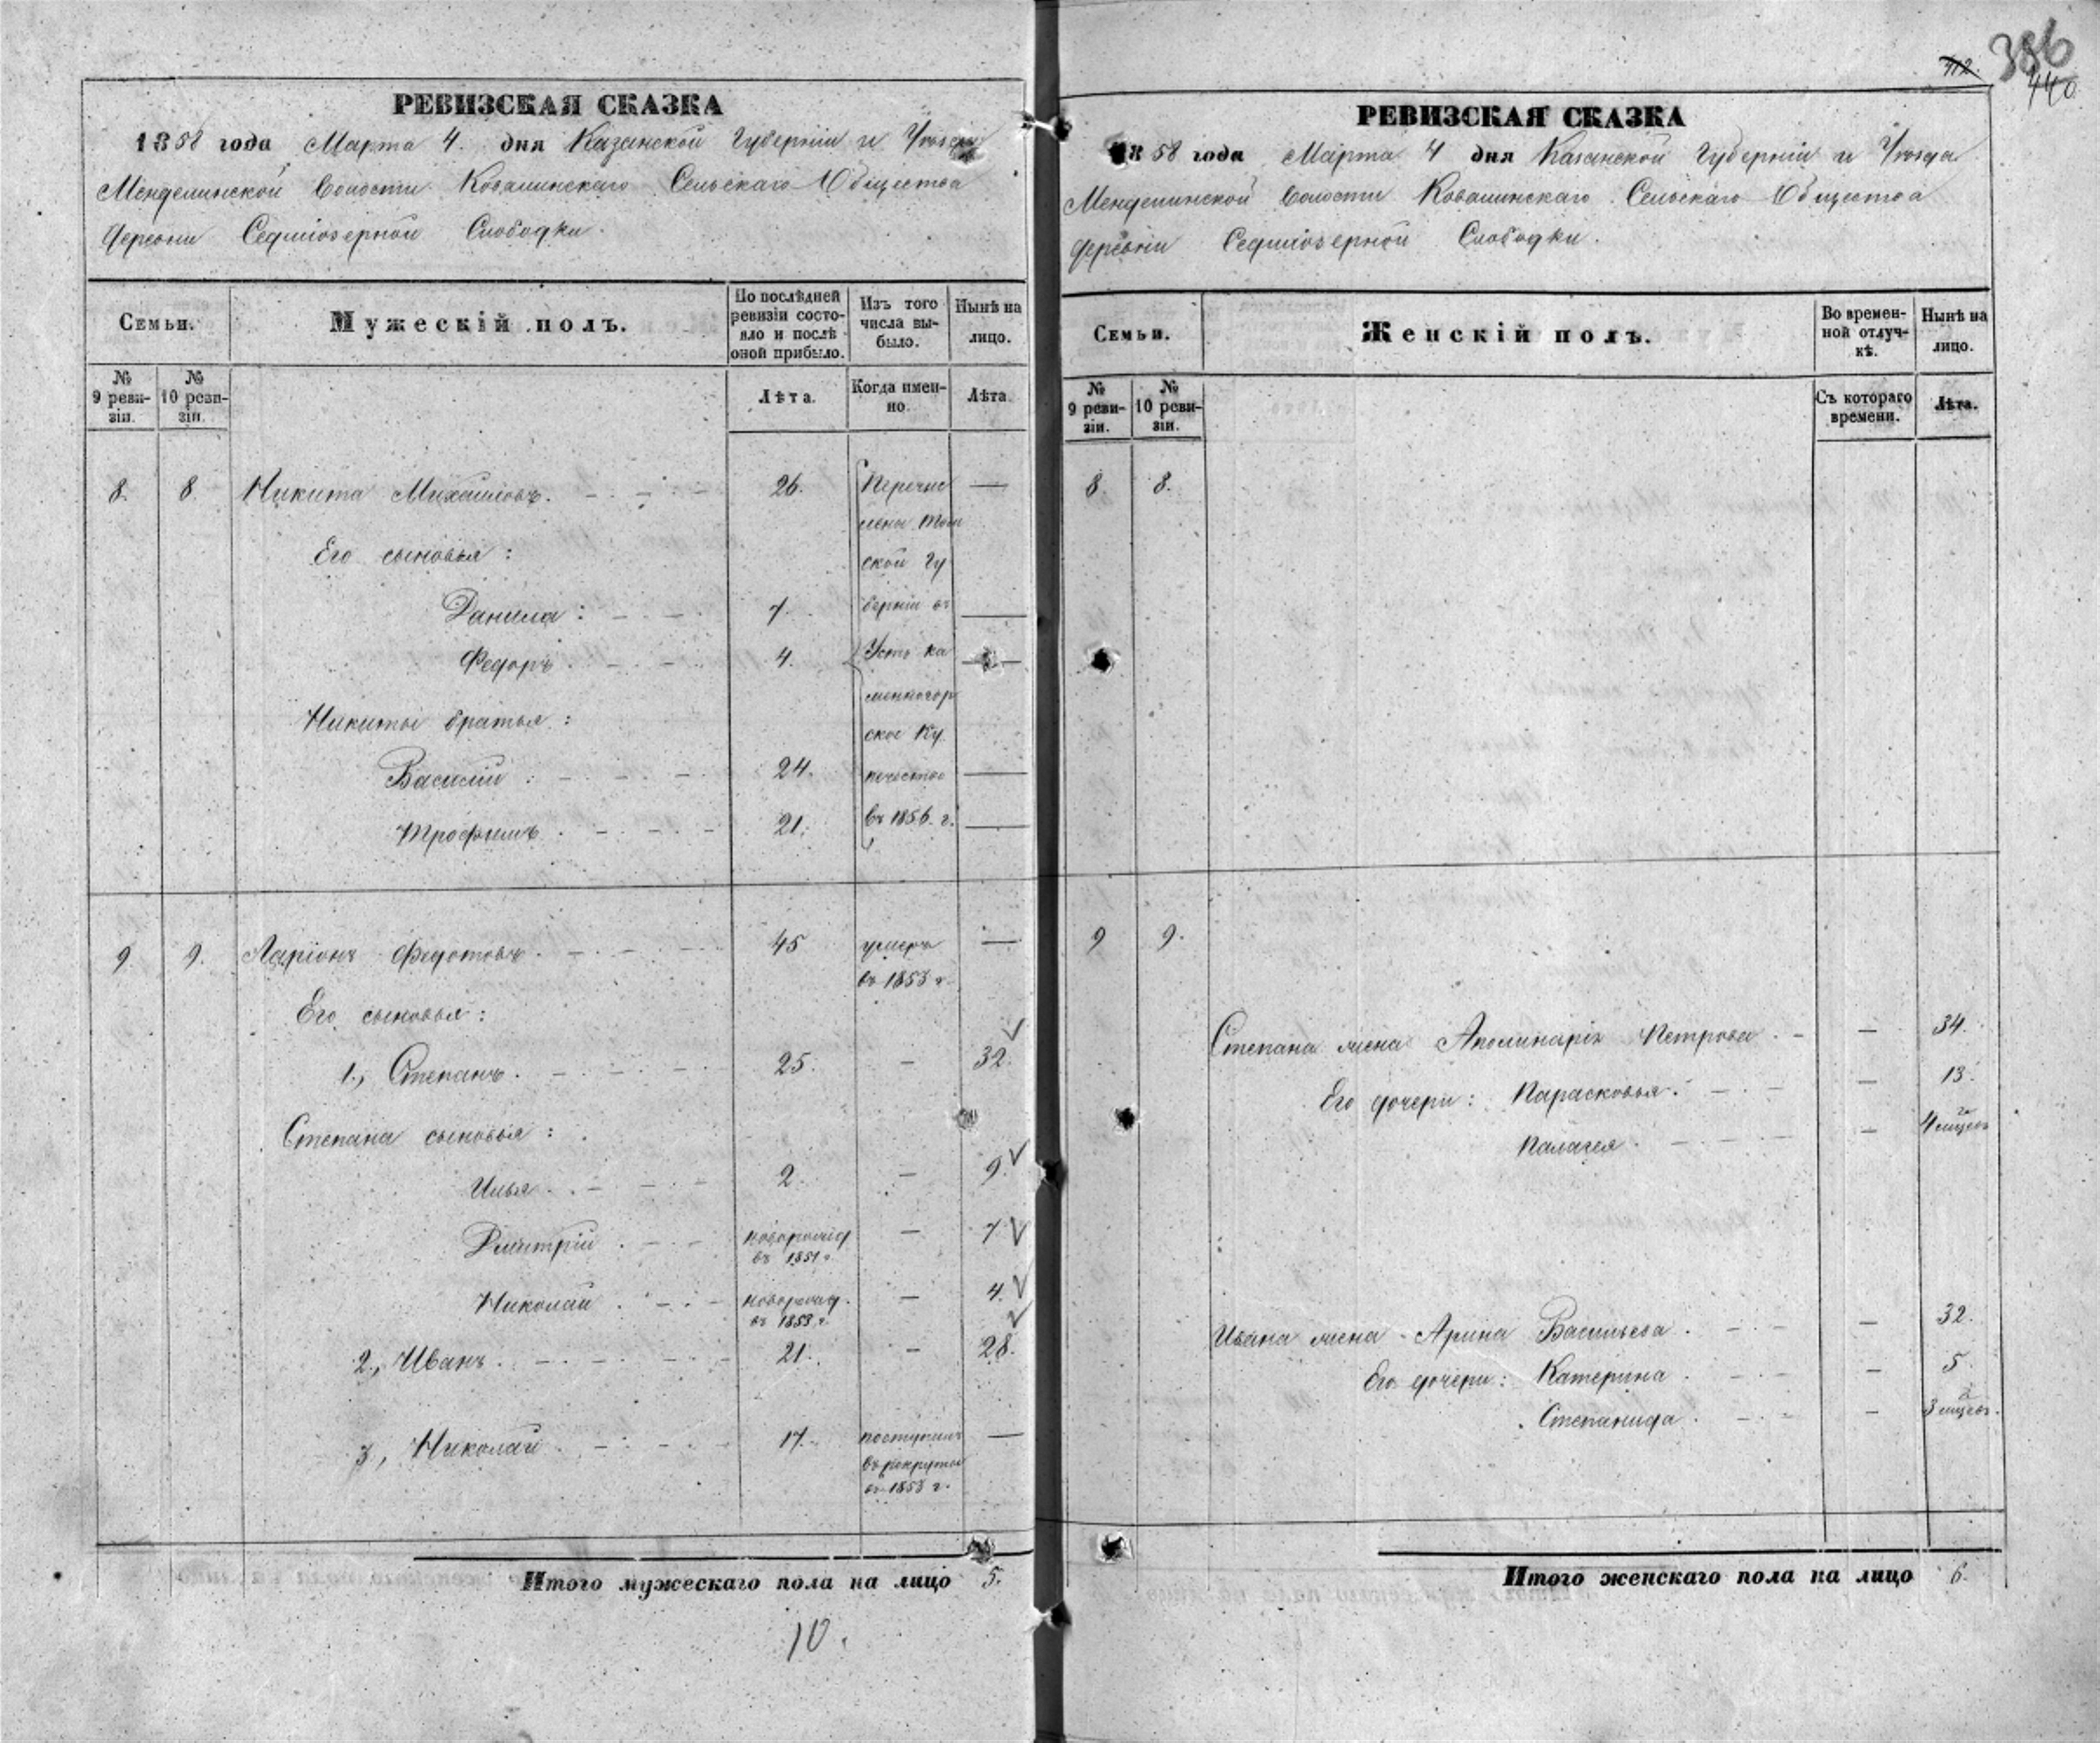 РЕВИЗСКАЯ СКАЗКА
1858 года Марта 4. дня Казанской Губерніи и Уѣзда
Менделинской Волости Ковалинскаго Сельскаго Общества
Деревни Седміозерной Слободки.
Семьи.
Мужескій полъ.
По послѣдней ревизіи состояло и послѣ оной прибыло.
Изъ того числа выбыло.
Нынѣ на лицо.
№ 9 ревизіи.
№ 10 ревизіи.
Лѣта.
Когда именно.
Лѣта.
8. 8. Никита Михайловъ. 26. Перечис —
лены Том
Его сыновья: ской Гу
Данила: 7. берніи въ —
Федоръ. 4. Усть ка —
менногор
Никиты братья: ское Ку
Василій: 24. печество —
Трофимъ. 21. въ 1856. г. —
9. 9. Ларіонъ Федотовъ. 45 умеръ —
въ 1853 г.
Его сыновья:
1., Степанъ. 25. — 32.
Степана сыновья:
Илья. 2. — 9.
Дмитрій. новорожд — 7
въ 1851 г.
Николай. новорожд. — 4.
въ 1853 г.
2., Иванъ. 21. — 28.
3., Николай. 17. поступилъ —
въ рекруты
въ 1853 г.
Итого мужескаго пола на лицо 5.
10.
412.
386
440
РЕВИЗСКАЯ СКАЗКА
1858 года Марта 4 дня Казанской Губерніи и Уѣзда
Менделинской Волости Ковалинскаго Сельскаго Общества
деревни Седміозерной Слободки.
Семьи.
Женскій полъ.
Во временной отлучкѣ.
Нынѣ на лицо.
№ 9 ревизіи.
№ 10 ревизіи.
Съ котораго времени.
Лѣта.
8. 8.
9 9.
Степана жена Аполинарія Петрова. — 34.
Его дочери: Парасковья. — 13.
Палагея. — 4 мцевъ
Ивана жена Арина Васильева. — 32.
Его дочери: Катерина. — 5
Степанида. — 3 мцевъ.
Итого женскаго пола на лицо 6.